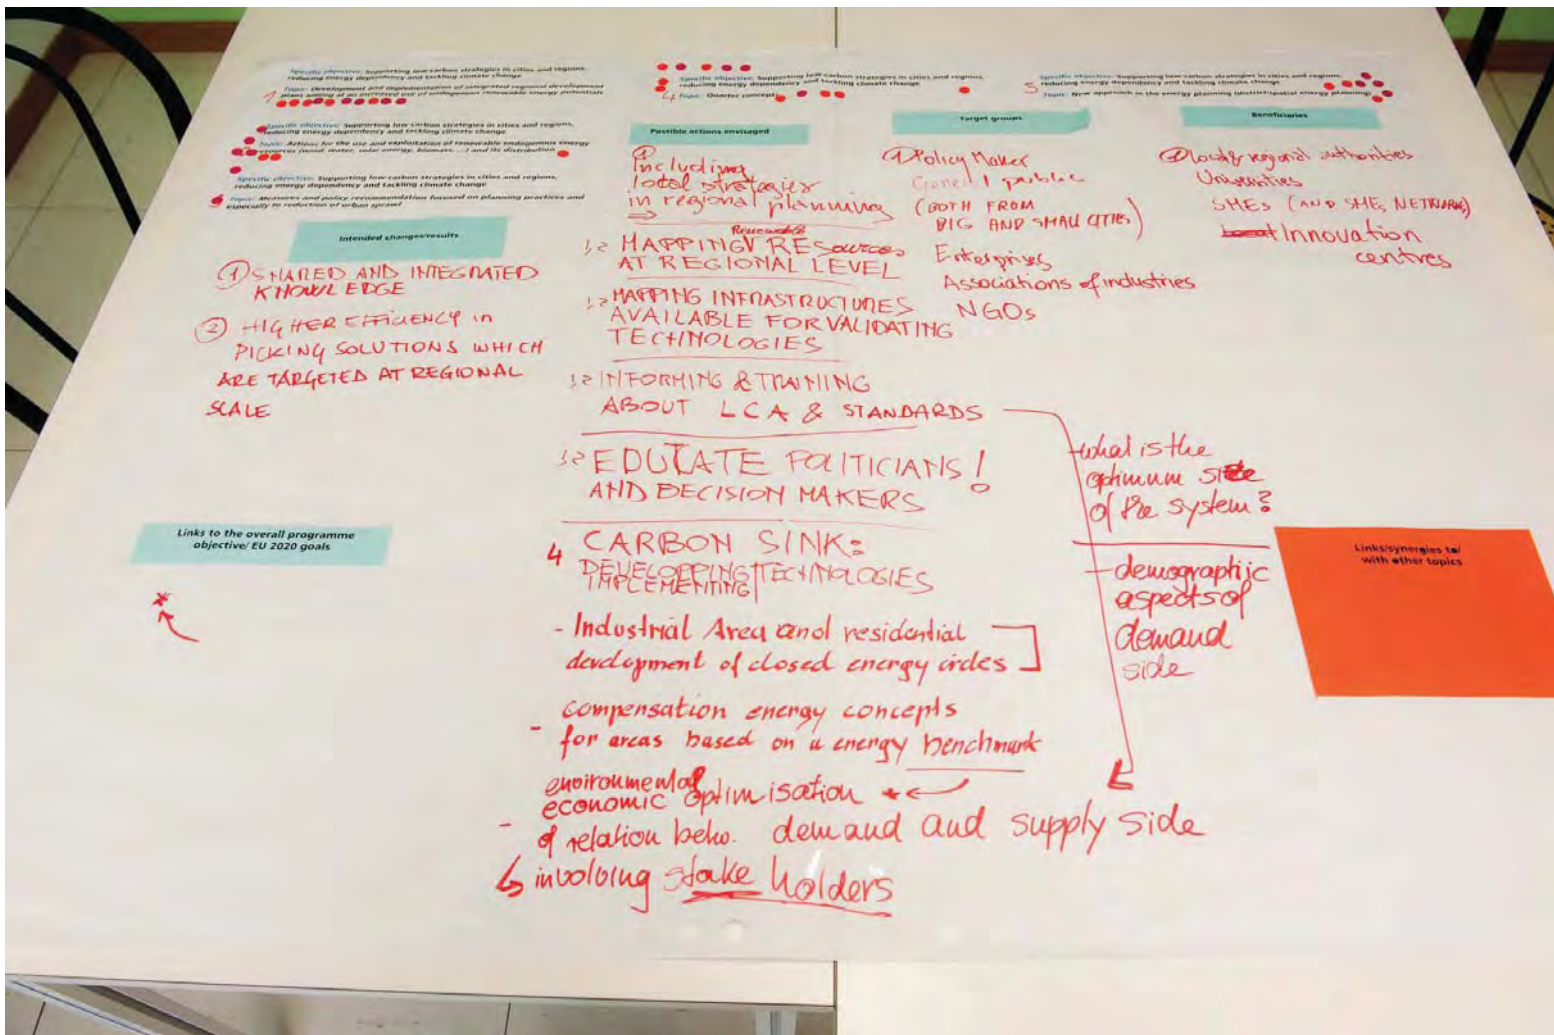 Specific objective: Supporting low-carbon strategies in cities and regions,
reducing energy dependency and tackling climate change
1 Topic: Development and implementation of integrated regional development
plans aiming at an increased use of endogenous renewable energy potentials
Specific objective: Supporting low-carbon strategies in cities and regions,
reducing energy dependency and tackling climate change
Topic: Actions for the use and exploitation of renewable endogenous energy
resources (wind, water, solar energy, biomass, ...) and its distribution
Specific objective: Supporting low-carbon strategies in cities and regions,
reducing energy dependency and tackling climate change
Topic: Measures and policy recommendation focused on planning practices and
especially to reduction of urban sprawl
Intended changes/results
① SHARED AND INTEGRATED
KNOWLEDGE
② HIGHER EFFICIENCY in
PICKING SOLUTIONS WHICH
ARE TARGETED AT REGIONAL
SCALE
Links to the overall programme
objective/ EU 2020 goals
Specific objective: Supporting low-carbon strategies in cities and regions,
reducing energy dependency and tackling climate change
4 Topic: Quarter concepts
Possible actions envisaged
Including
local strategies
in regional planning
Renewable
1,2 MAPPING RESources
AT REGIONAL LEVEL
1,2 MAPPING INFRASTRUCTURES
AVAILABLE FOR VALIDATING
TECHNOLOGIES
1,2 INFORMING & TRAINING
ABOUT LCA & STANDARDS
1,2 EDUCATE POLITICIANS!
AND DECISION MAKERS
4 CARBON SINK:
DEVELOPPING TECHNOLOGIES
IMPLEMENTING
- Industrial Area and residential
development of closed energy circles
compensation energy concepts
- for areas based on a energy benchmark
environmental
economic optimisation *
- of relation betw. demand and supply side
involving stake holders
Target groups
① Policy Maker
General public
(BOTH FROM
BIG AND SMALL CITIES)
Enterprises
Associations of industries
NGOs
- what is the
optimum size
of the system?
- demographic
aspects of
demand
side
5 Specific objective: Supporting low-carbon strategies in cities and regions,
reducing energy dependency and tackling climate change
Topic: New approach in the energy planning (district/spatial energy planning)
Beneficiaries
Local & regional authorities
Universities
SMEs (AND SMEs NETWORKS)
Innovation
centres
Links/synergies to/
with other topics